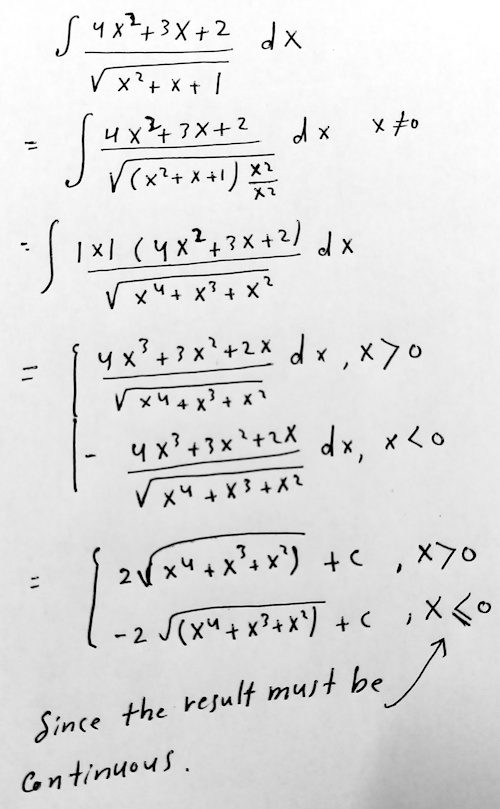 ∫ (4x²+3x+2)/√(x²+x+1) dx
= ∫ (4x²+3x+2)/√((x²+x+1) x²/x²) dx x≠0
= ∫ |x| (4x²+3x+2)/√(x⁴+x³+x²) dx
= { (4x³+3x²+2x)/√(x⁴+x³+x²) dx, x>0
- (4x³+3x²+2x)/√(x⁴+x³+x²) dx, x<0
= { 2√(x⁴+x³+x²) + c , x>0
-2 √(x⁴+x³+x²) + c , x≤0
Since the result must be
continuous.